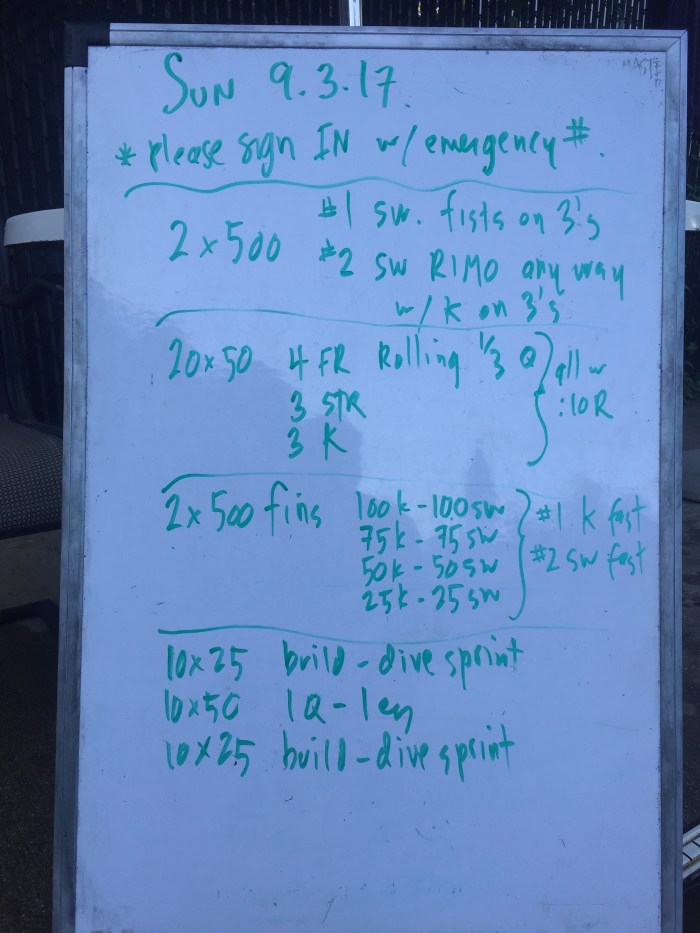 MASTER
SUN 9.3.17.
* please sign IN w/ emergency #.
2 x 500 #1 sw. fists on 3's
#2 SW RIMO any way
w/ K on 3's
20x50 4 FR Rolling 1/3 Q all w
3 STR :10R
3 K
2x500 fins 100k - 100sw #1 k fast
75k - 75sw #2 sw fast
50k - 50sw
25k - 25sw
10x25 build - dive sprint
10x50 1Q - 1 ey
10x25 build - dive sprint